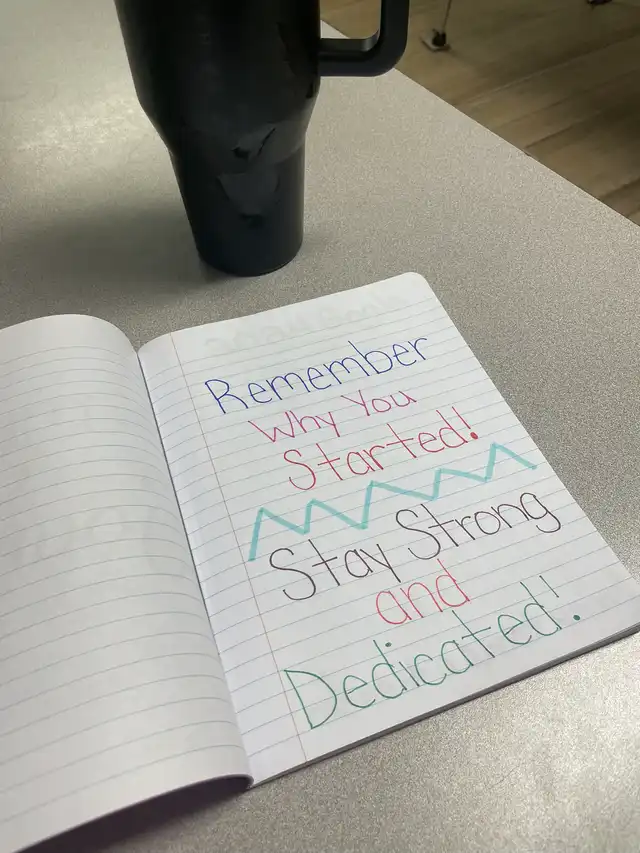 Remember
Why You
Started!
Stay Strong
and
Dedicated!